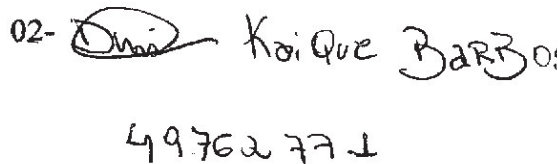 02- Kaique BARBO
49762771